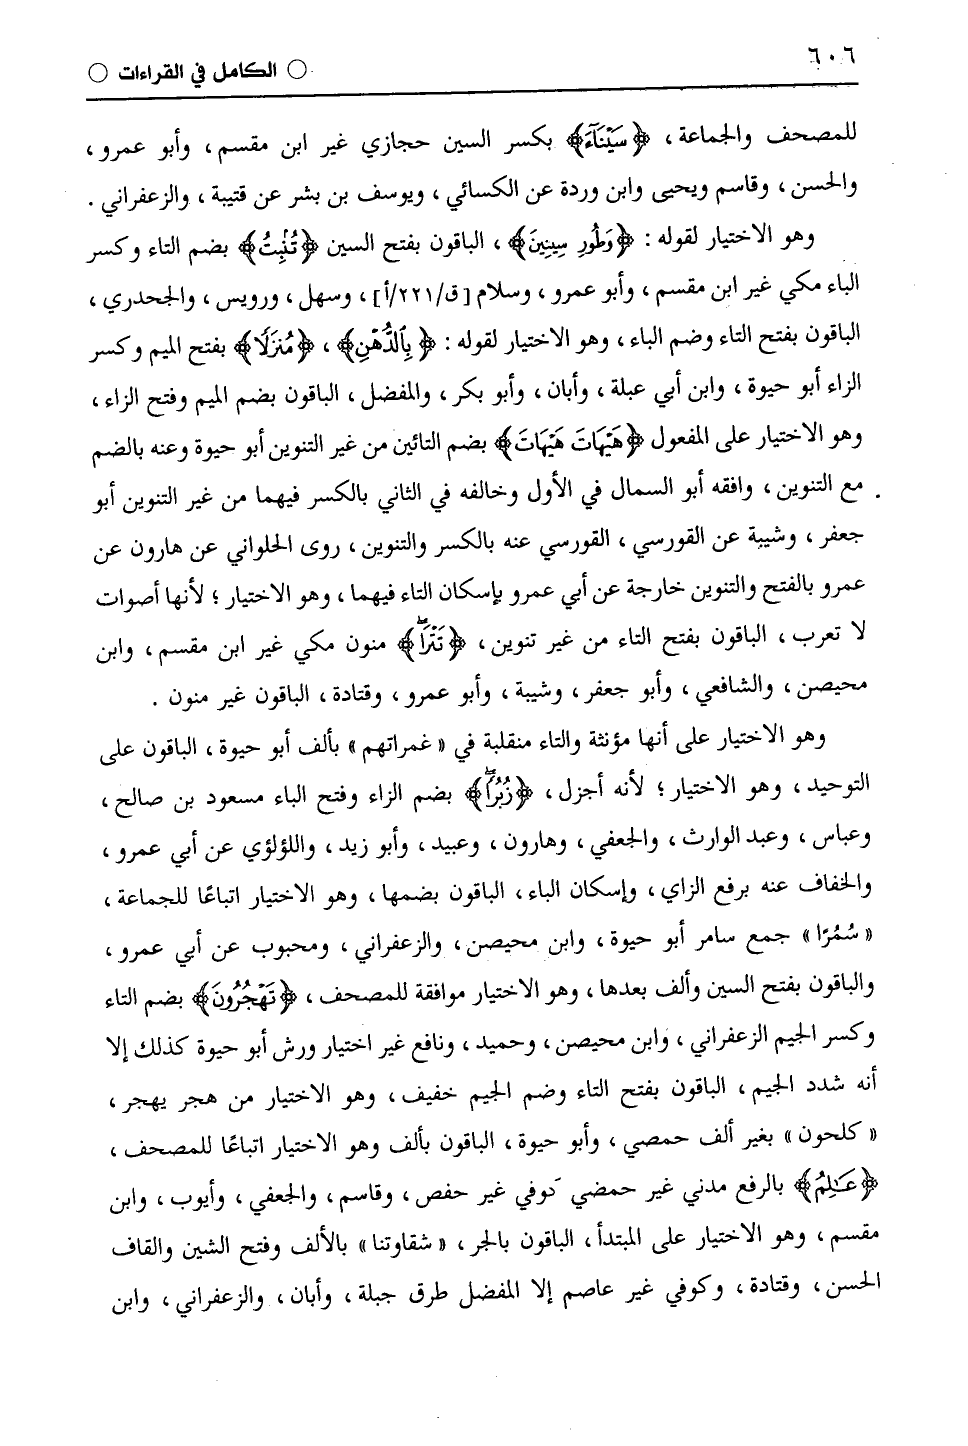 ٦٠٦
○ الكامل في القراءات ○
للمصحف والجماعة ، ﴿سَيْنَآءَ﴾ بكسر السين حجازي غير ابن مقسم ، وأبو عمرو ،
والحسن ، وقاسم ويحيى وابن وردة عن الكسائي ، ويوسف بن بشر عن قتيبة ، والزعفراني .
وهو الاختيار لقوله : ﴿وَطُورِ سِينِينَ﴾ ، الباقون بفتح السين ﴿تُنۢبِتُ﴾ بضم التاء وكسر
الباء مكي غير ابن مقسم ، وأبو عمرو ، وسلام [ق/٢٢١/أ] ، وسهل ، ورويس ، والجحدري ،
الباقون بفتح التاء وضم الباء ، وهو الاختيار لقوله : ﴿بِٱلدُّهْنِ﴾ ، ﴿مُنزَلًا﴾ بفتح الميم وكسر
الزاء أبو حيوة ، وابن أبي عبلة ، وأبان ، وأبو بكر ، والمفضل ، الباقون بضم الميم وفتح الزاء ،
وهو الاختيار على المفعول ﴿هَيْهَاتَ هَيْهَاتَ﴾ بضم التائين من غير التنوين أبو حيوة وعنه بالضم
مع التنوين ، وافقه أبو السمال في الأول وخالفه في الثاني بالكسر فيهما من غير التنوين أبو
جعفر ، وشيبة عن القورسي ، القورسي عنه بالكسر والتنوين ، روى الحلواني عن هارون عن
عمرو بالفتح والتنوين خارجة عن أبي عمرو بإسكان التاء فيهما ، وهو الاختيار ؛ لأنها أصوات
لا تعرب ، الباقون بفتح التاء من غير تنوين ، ﴿تَتْرَاۖ﴾ منون مكي غير ابن مقسم ، وابن
محيصن ، والشافعي ، وأبو جعفر ، وشيبة ، وأبو عمرو ، وقتادة ، الباقون غير منون .
وهو الاختيار على أنها مؤنثة والتاء منقلبة في « غمراتهم » بألف أبو حيوة ، الباقون على
التوحيد ، وهو الاختيار ؛ لأنه أجزل ، ﴿زُبُرًاۖ﴾ بضم الزاء وفتح الباء مسعود بن صالح ،
وعباس ، وعبد الوارث ، والجعفي ، وهارون ، وعبيد ، وأبو زيد ، واللؤلؤي عن أبي عمرو ،
والخفاف عنه برفع الزاي ، وإسكان الباء ، الباقون بضمها ، وهو الاختيار اتباعًا للجماعة ،
« سُمُرًا » جمع سامر أبو حيوة ، وابن محيصن ، والزعفراني ، ومحبوب عن أبي عمرو ،
والباقون بفتح السين وألف بعدها ، وهو الاختيار موافقة للمصحف ، ﴿تَهْجُرُونَ﴾ بضم التاء
وكسر الجيم الزعفراني ، وابن محيصن ، وحميد ، ونافع غير اختيار ورش أبو حيوة كذلك إلا
أنه شدد الجيم ، الباقون بفتح التاء وضم الجيم خفيف ، وهو الاختيار من هجر يهجر ،
« كلحون » بغير ألف حمصي ، وأبو حيوة ، الباقون بألف وهو الاختيار اتباعًا للمصحف ،
﴿عَٰلِمُ﴾ بالرفع مدني غير حمضي كوفي غير حفص ، وقاسم ، والجعفي ، وأيوب ، وابن
مقسم ، وهو الاختيار على المبتدأ ، الباقون بالجر ، « شقاوتنا » بالألف وفتح الشين والقاف
الحسن ، وقتادة ، وكوفي غير عاصم إلا المفضل طرق جبلة ، وأبان ، والزعفراني ، وابن